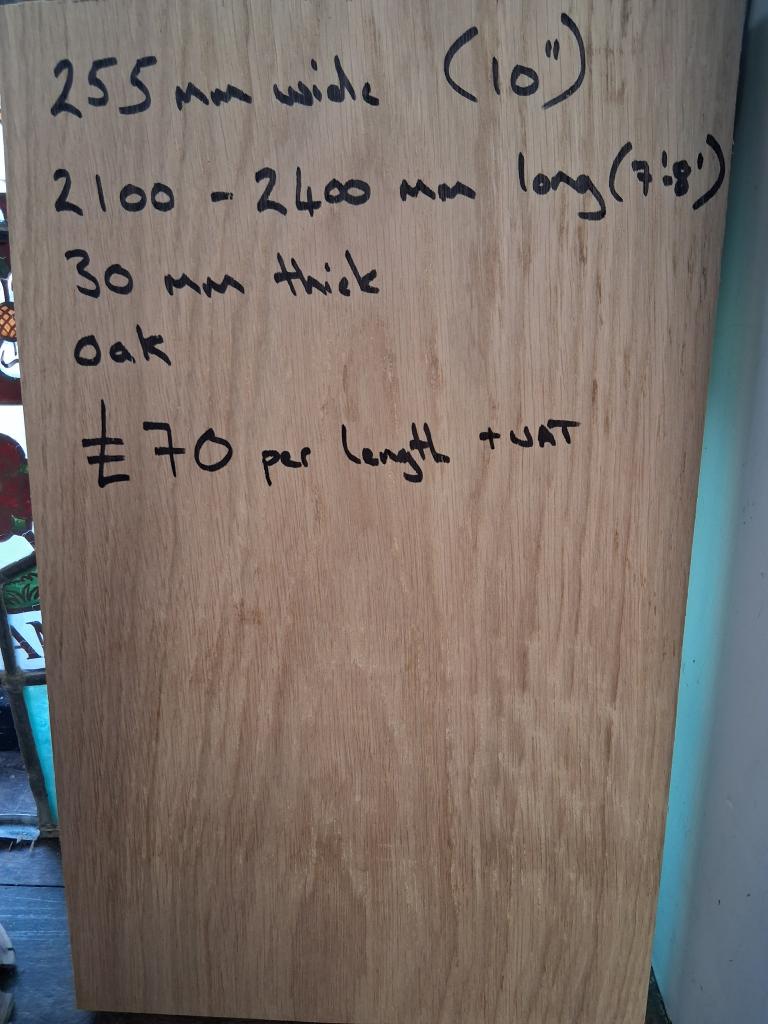 255 mm wide (10")
2100 - 2400 mm long (7'-8')
30 mm thick
oak
£70 per length + VAT